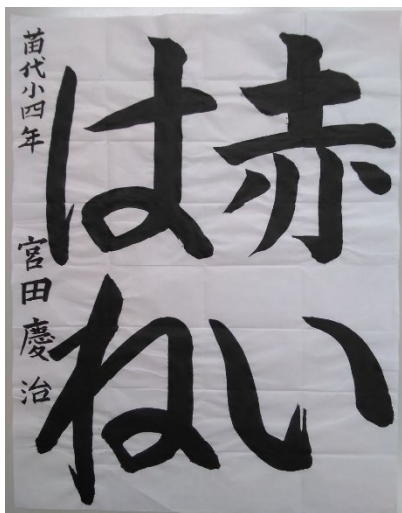 赤い
はね
苗代小四年 宮田慶治